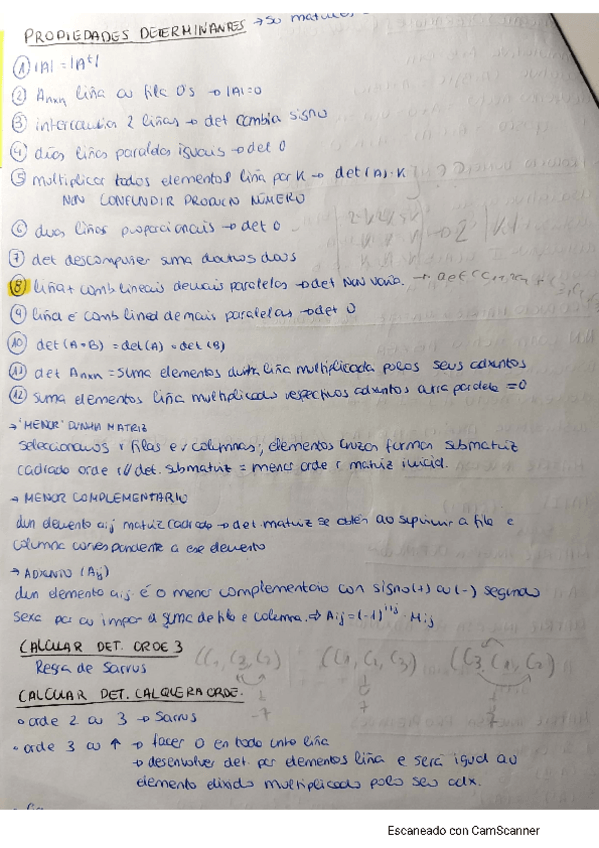 PROPIEDADES DETERMINANTES →
① |A| = |Aᵗ|
② Anxn liña ou fila 0's → |A|=0
③ intercambia 2 liñas → det cambia signo
④ dúas liñas paralelas iguais → det 0
⑤ multiplicar todos elementos liña por K → det(A)·K
NON CONFUNDIR PRODUCTO NÚMERO
⑥ dúas liñas proporcionais → det 0
⑦ det descomponer suma doutros dous
⑧ liña + comb lineais demais paralelas → det NON varía. →
⑨ liña é comb lineal demais paralelas → det 0
⑩ det(A·B) = det(A) · det(B)
⑪ det Anxn = suma elementos dunha liña multiplicada polos seus adxuntos
⑫ suma elementos liña multiplicados respectivos adxuntos outra paralela = 0
→ 'MENOR' DUNHA MATRIZ
Seleccionamos r filas e r columnas; elementos cruzan forman submatriz
cadrada orde r // det. submatriz = menor orde r matriz inicial.
→ MENOR COMPLEMENTARIO
dun elemento aij matriz cadrada → det. matriz se obtén ao suprimir a fila e
columna correspondente a ese elemento
→ ADXUNTO (Aij)
dun elemento aij é o menor complementario con signo (+) ou (-) segundo
sexa par ou impar a suma de fila e columna. ⇒ Aij = (-1)ⁱ⁺ʲ · Mij
CALCULAR DET. ORDE 3
Regra de Sarrus
(C1, C3, C2) (C1, C1, C3) (C3, C1, C2)
-7 0 7
7
CALCULAR DET. CALQUERA ORDE.
• orde 2 ou 3 → Sarrus
• orde 3 ou ↑ → facer 0 en toda unha liña
→ desenvolver det. por elementos liña e será igual ao
elemento elixido multiplicado polo seu adx.
Escaneado con CamScanner